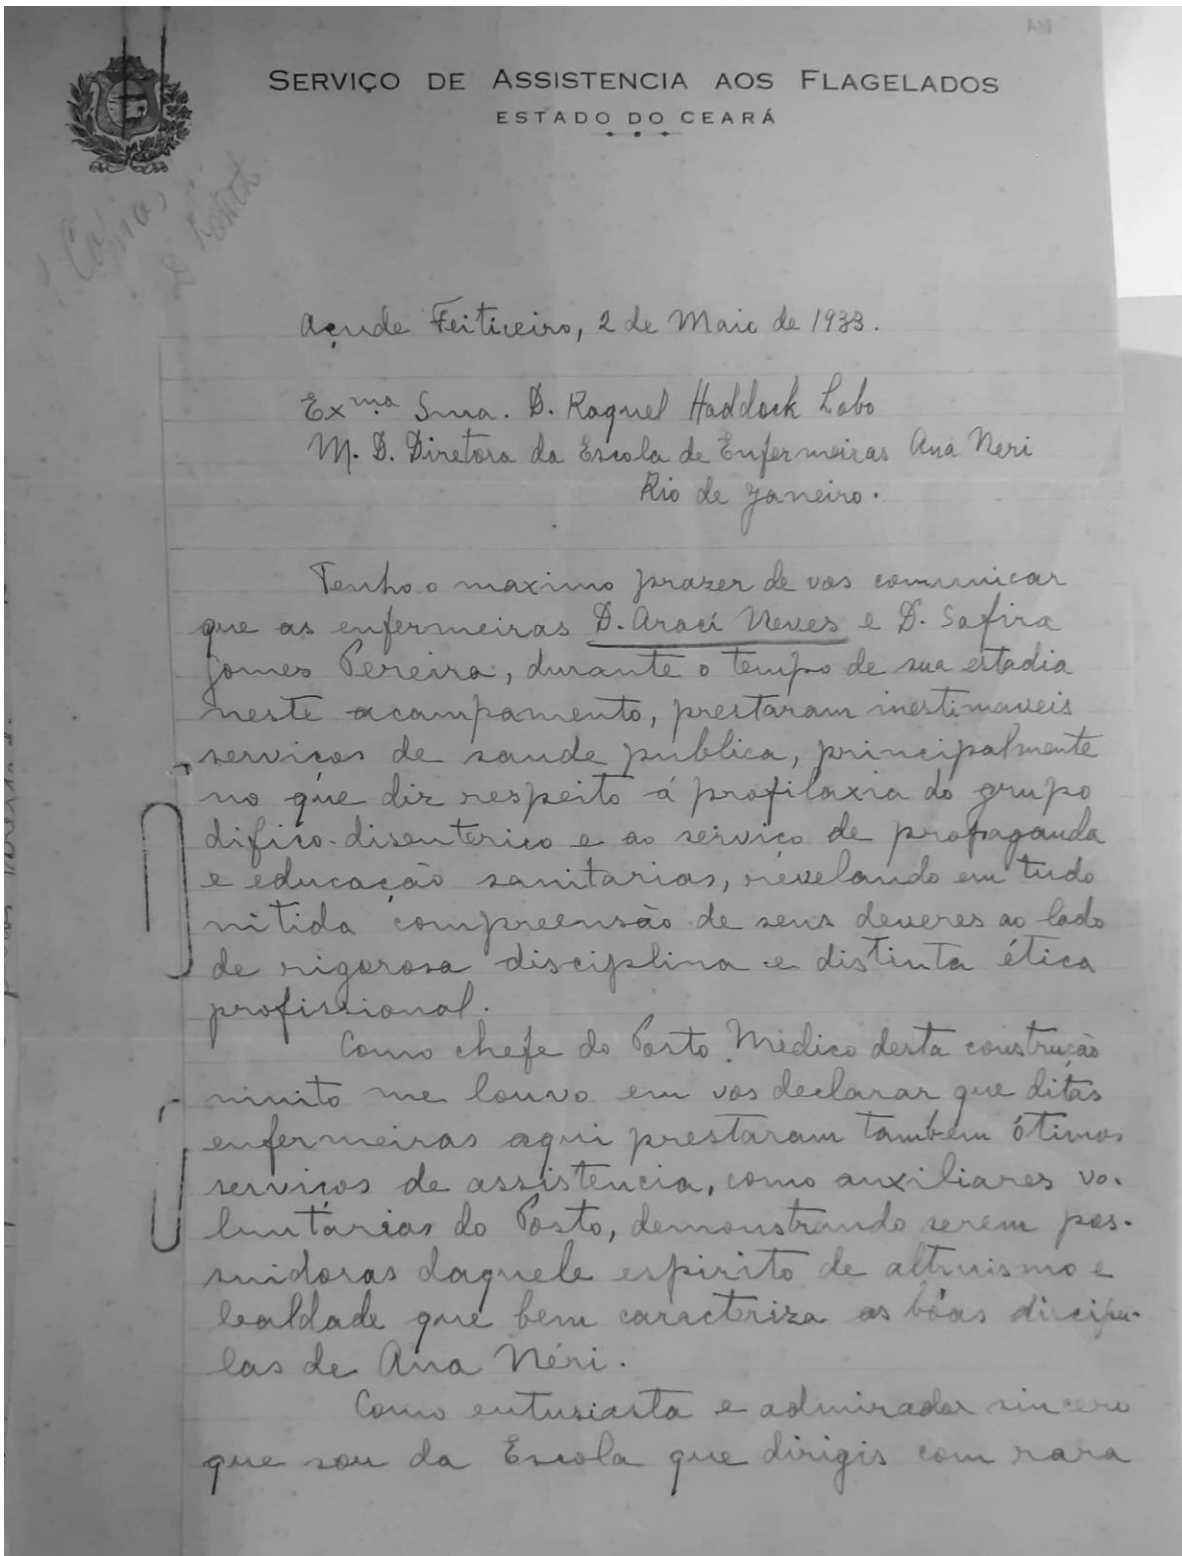 SERVIÇO DE ASSISTENCIA AOS FLAGELADOS
ESTADO DO CEARÁ
Copias
Açude Feiticeiro, 2 de Maio de 1933.
Exma Snra. D. Raquel Haddock Lobo
M. D. Diretora da Escola de Enfermeiras Ana Neri
Rio de Janeiro.
Tenho o maximo prazer de vos comunicar
que as enfermeiras D. Aracì Neves e D. Safira
Gomes Pereira, durante o tempo de sua estadia
neste acampamento, prestaram inestimaveis
serviços de saude publica, principalmente
no que diz respeito á profilaxia do grupo
difico-disenterico e ao serviço de propaganda
e educação sanitarias, revelando em tudo
nitida compreensão de seus deveres ao lado
de rigorosa disciplina e distinta ética
profissional.
Como chefe do Posto Médico desta construção
muito me louvo em vos declarar que ditas
enfermeiras aqui prestaram também ótimos
serviços de assistencia, como auxiliares vo-
luntárias do Posto, demonstrando serem pos-
suidoras daquele espirito de altruismo e
lealdade que bem caracteriza as bôas discipu-
las de Ana Néri.
Como entusiasta e admirador sincero
que sou da Escola que dirigis com rara